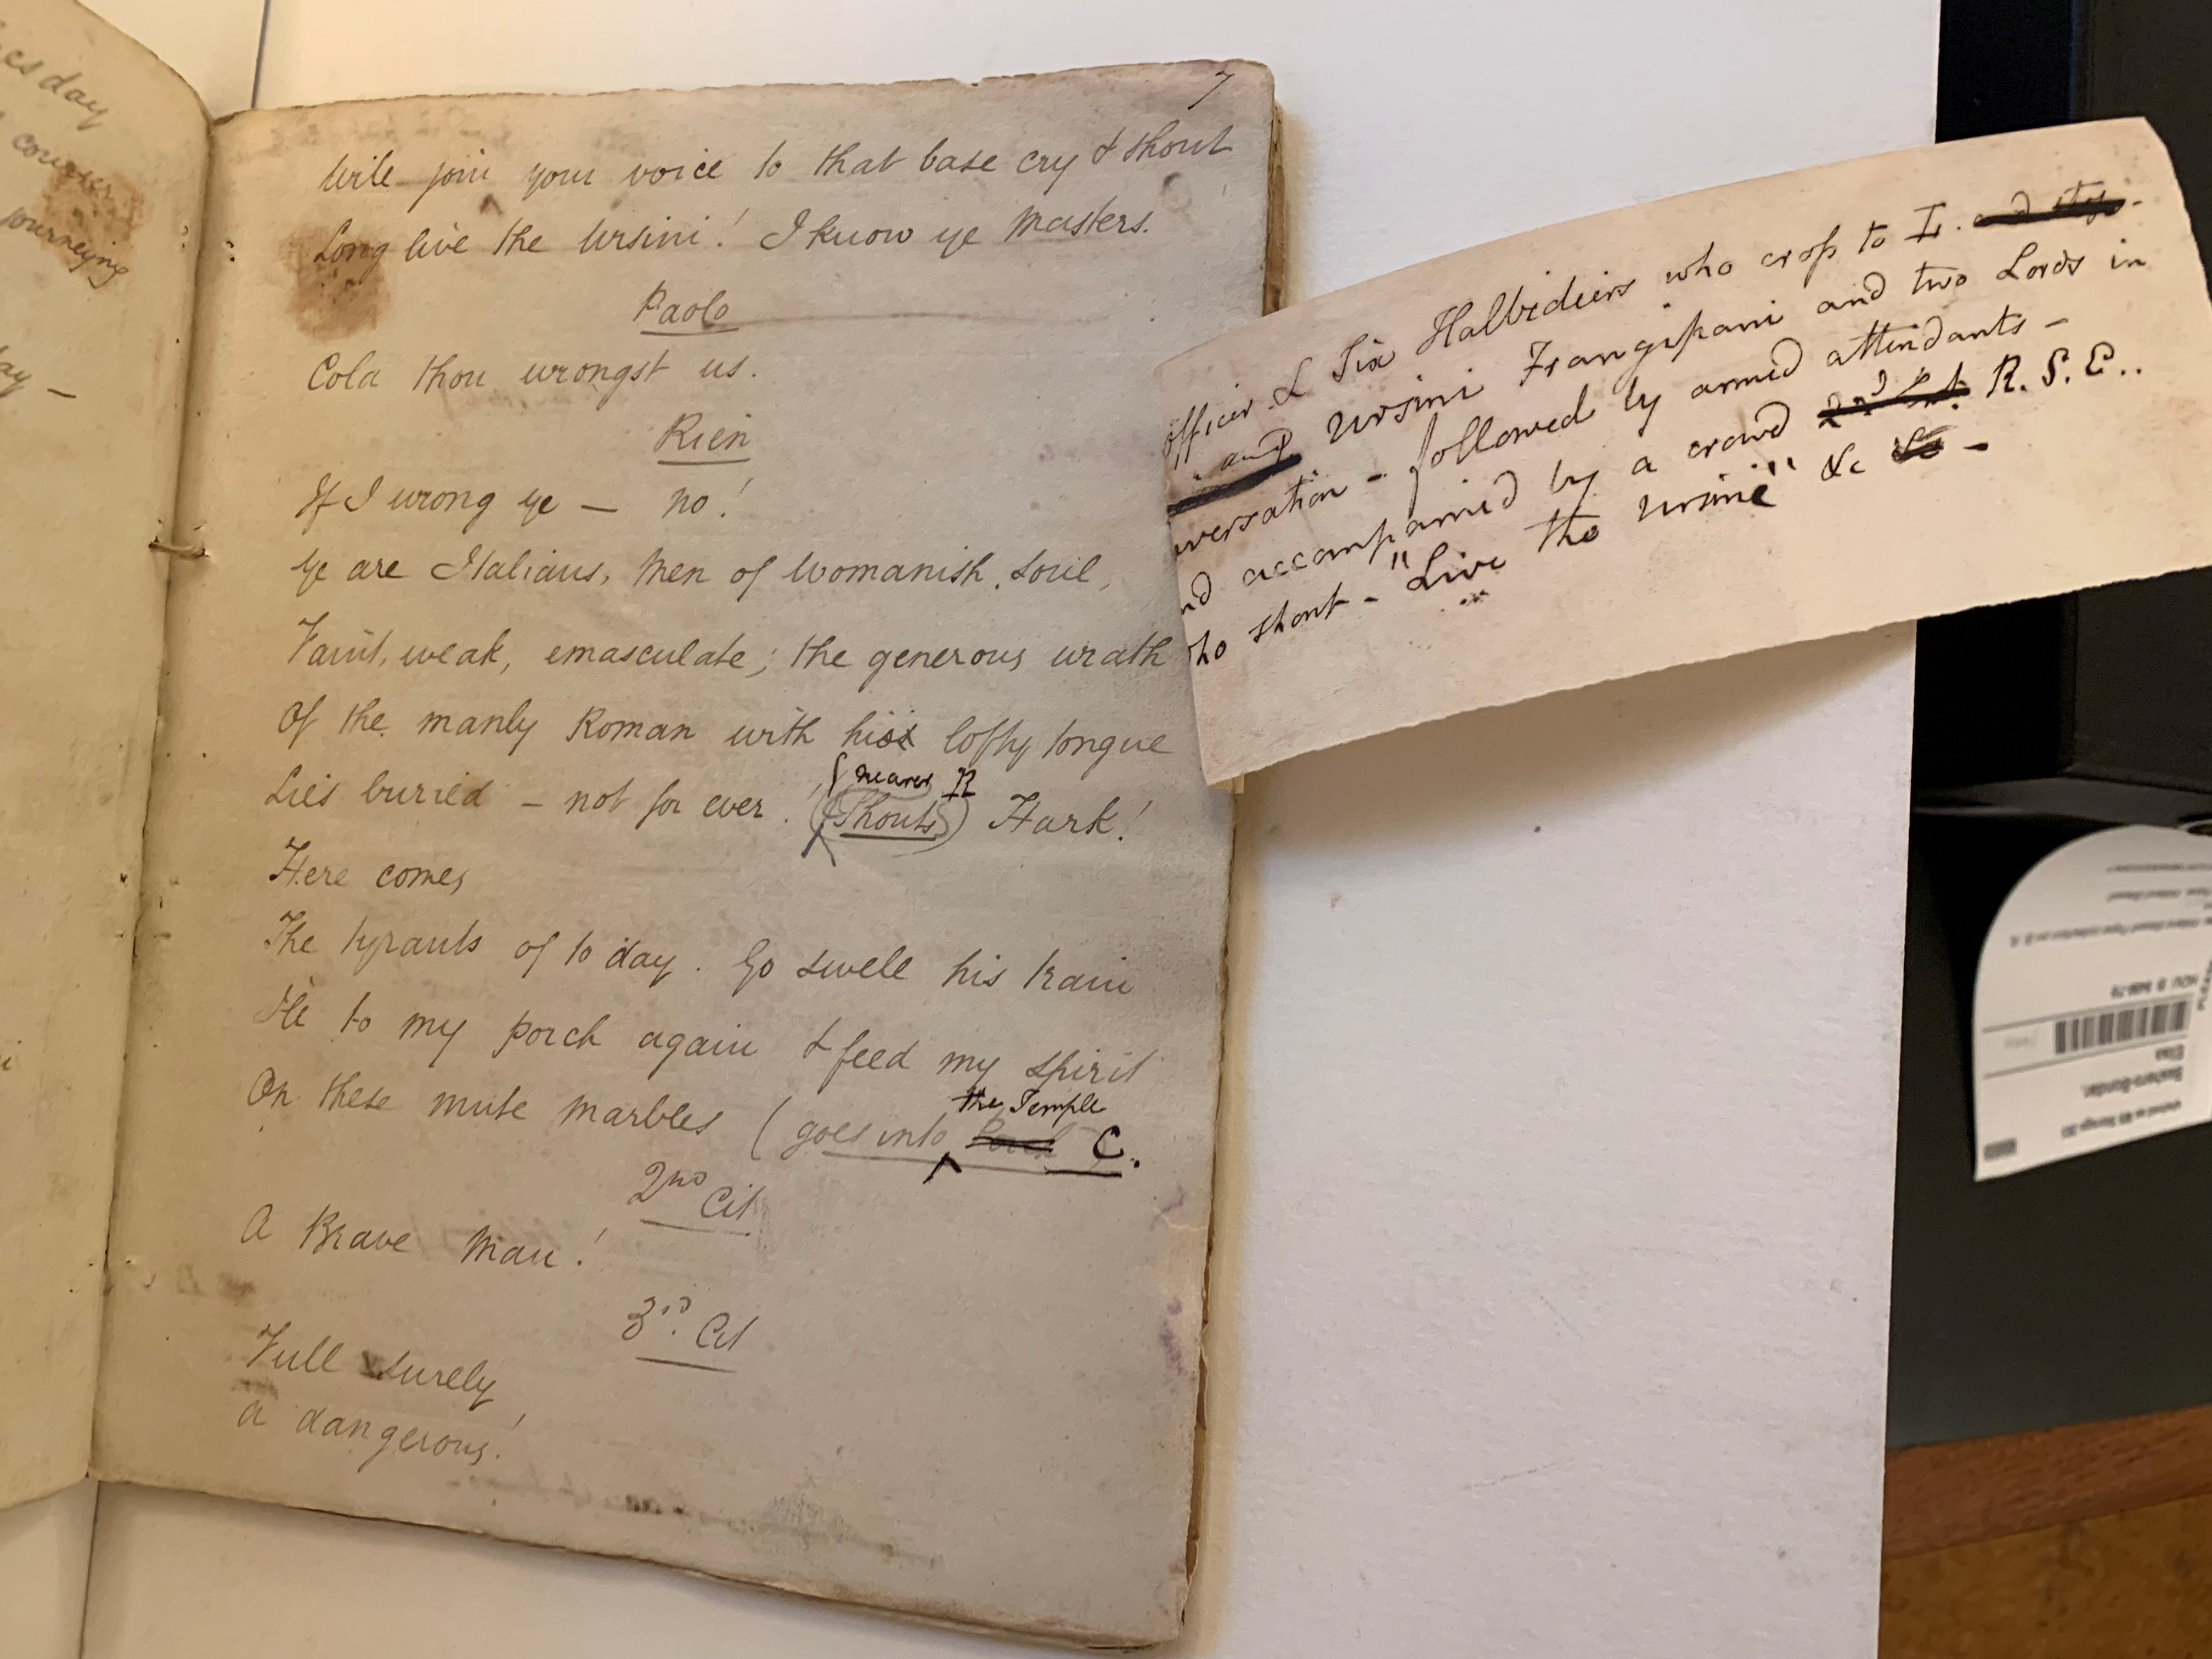 esday
journeying
ay —
7
Will join your voice to that base cry & shout
Long live the Ursini! I know ye Masters.
Paolo
Cola thou wrongst us.
Rien
If I wrong ye — no!
Ye are Italians, Men of Womanish soul,
Faint, weak, emasculate; the generous wrath
Of the manly Roman with his lofty tongue
Lies buried – not for ever! (Shouts nearer R) Hark!
Here comes
The tyrants of to day. Go swell his train
He to my porch again & feed my spirit
On these mute marbles (goes into the Temple C.
2nd Cit
A Brave Man!
3rd Cit
Full surely
A dangerous!
officer & Six Halbideirs who cross to L.
and Ursini Frangipani and two Lords in
versation – followed by armed attendants –
nd accompanied by a crowd R. S. E..
ho shout – "Live the Ursini" &c –